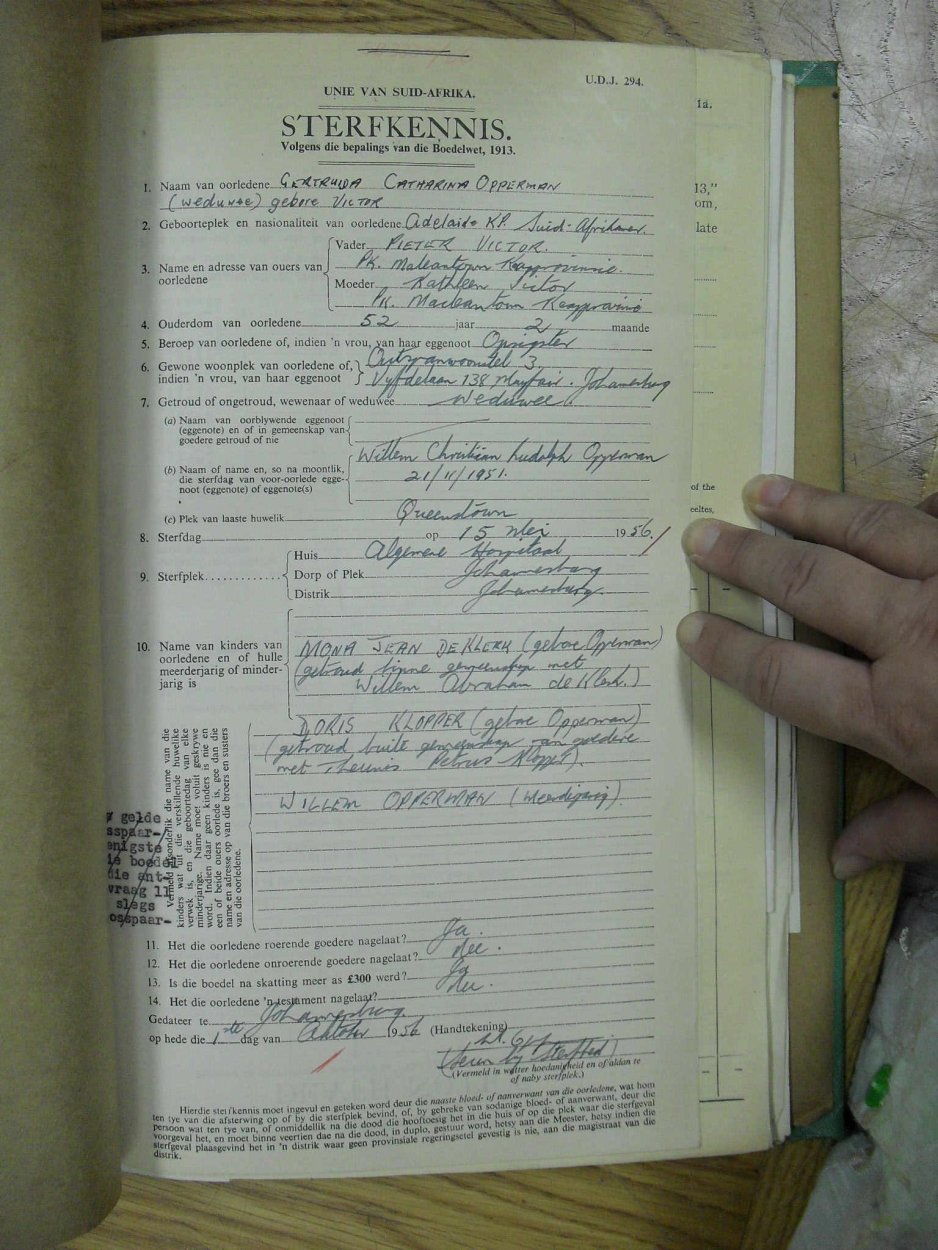 U.D.J. 294.
UNIE VAN SUID-AFRIKA.
STERFKENNIS.
Volgens die bepalings van die Boedelwet, 1913.
1a.
1. Naam van oorledene GERTRUIDA CATHARINA OPPERMAN
(weduwee) gebore VICTOR
13,"
om,
2. Geboorteplek en nasionaliteit van oorledene Adelaide K.P. Suid-Afrikaner.
late
3. Name en adresse van ouers van oorledene
Vader PIETER VICTOR.
PK. Macleantown Kaapprovinsie.
Moeder Kathleen Victor
PK. Macleantown Kaapprovinsie
4. Ouderdom van oorledene 52 jaar 2 maande
5. Beroep van oorledene of, indien 'n vrou, van haar eggenoot Opsigster
6. Gewone woonplek van oorledene of, indien 'n vrou, van haar eggenoot
3
Vyfdelaan 138 Mayfair. Johannesburg
7. Getroud of ongetroud, wewenaar of weduwee weduwee.
(a) Naam van oorblywende eggenoot (eggenote) en of in gemeenskap van goedere getroud of nie
(b) Naam of name en, so na moontlik, die sterfdag van voor-oorlede eggenoot (eggenote) of eggenote(s)
Willem Christian Ludolph Opperman
21/11/1951.
of the
(c) Plek van laaste huwelik Queenstown
8. Sterfdag op 15 Mei 1956.
9. Sterfplek
Huis Algemene Hospitaal,
Dorp of Plek Johannesburg
Distrik Johannesburg.
10. Name van kinders van oorledene en of hulle meerderjarig of minderjarig is
MONA JEAN DE KLERK (gebore Opperman)
(getroud binne gemeenskap met
Willem Abraham de Klerk.)
DORIS KLOPPER (gebore Opperman)
(getroud buite gemeenskap van goedere
met Theunis Petrus Klopper).
WILLEM OPPERMAN (Meerderjarig).
Vermeld afsonderlik die name van die
kinders wat uit die verskillende huwelike
verwek is, en die geboortedag van elke
minderjarige. Name moet voluit geskrywe
word. Indien daar geen kinders is nie en
een of beide ouers oorlede is, gee dan die
name en adresse op van die broers en susters
van die oorledene.
gelde
sspaar-
enigste
ie boedel
die ant-
vraag 11
slegs
osspaar-
11. Het die oorledene roerende goedere nagelaat? Ja.
12. Het die oorledene onroerende goedere nagelaat? Nee.
13. Is die boedel na skatting meer as £300 werd? Ja
14. Het die oorledene 'n testament nagelaat? Nee.
Gedateer te Johannesburg
op hede die 1ste dag van Oktober 1956 (Handtekening)
(Vermeld in watter hoedanigheid en of aldan te of naby sterfplek.)
Hierdie sterfkennis moet ingevul en geteken word deur die naaste bloed- of aanverwant van die oorledene, wat hom
ten tye van die afsterwing op of by die sterfplek bevind, of, by gebreke van sodanige bloed- of aanverwant, deur die
persoon wat ten tye van, of onmiddellik na die dood die hooftoesig het in die huis of op die plek waar die sterfgeval
voorgeval het, en moet binne veertien dae na die dood, in duplo, gestuur word, hetsy aan die Meester, hetsy indien die
sterfgeval plaasgevind het in 'n distrik waar geen provinsiale regeringsetel gevestig is nie, aan die magistraat van die
distrik.